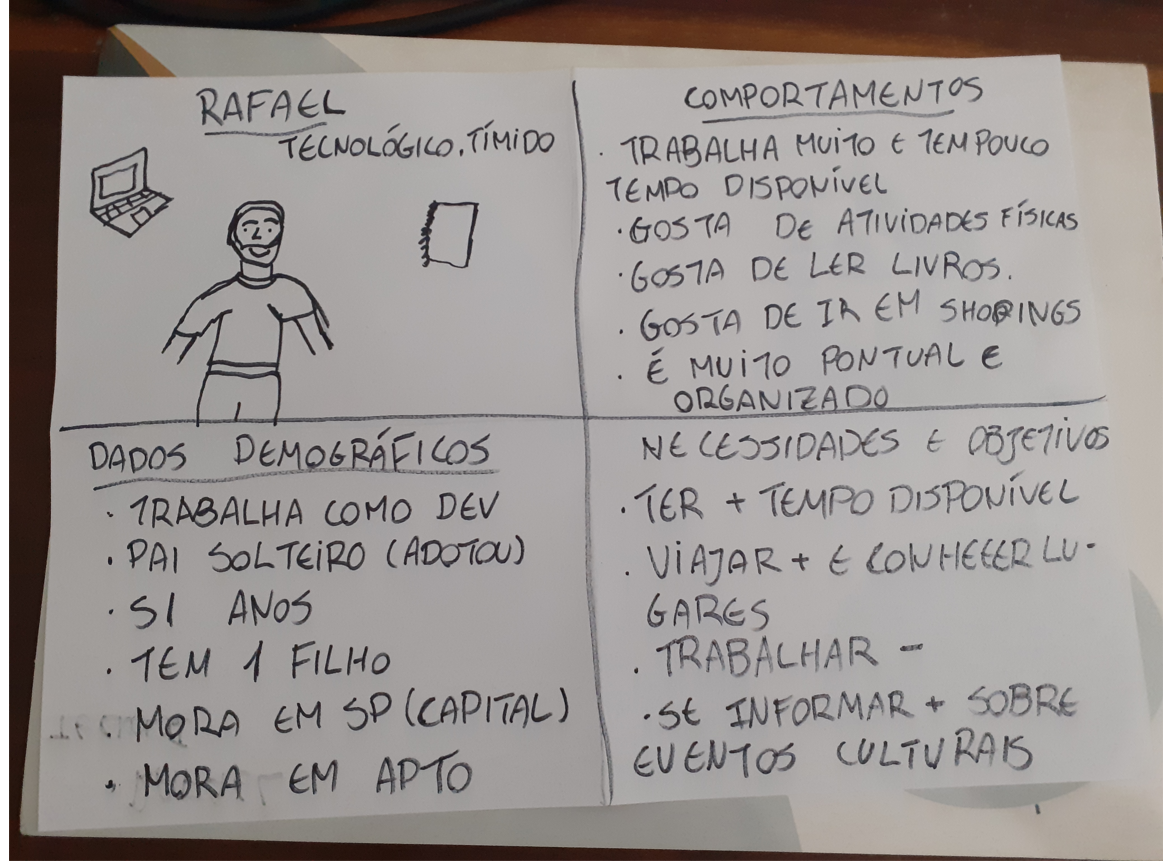 RAFAEL
TECNOLÓGICO, TÍMIDO
COMPORTAMENTOS
· TRABALHA MUITO E TEM POUCO
TEMPO DISPONÍVEL
· GOSTA DE ATIVIDADES FÍSICAS
· GOSTA DE LER LIVROS.
· GOSTA DE IR EM SHOPPINGS
· É MUITO PONTUAL E
ORGANIZADO
DADOS DEMOGRÁFICOS
· TRABALHA COMO DEV
· PAI SOLTEIRO (ADOTOU)
· 51 ANOS
· TEM 1 FILHO
· MORA EM SP (CAPITAL)
· MORA EM APTO
NECESSIDADES E OBJETIVOS
· TER + TEMPO DISPONÍVEL
· VIAJAR + E CONHECER LU-
GARES
· TRABALHAR -
· SE INFORMAR + SOBRE
EVENTOS CULTURAIS